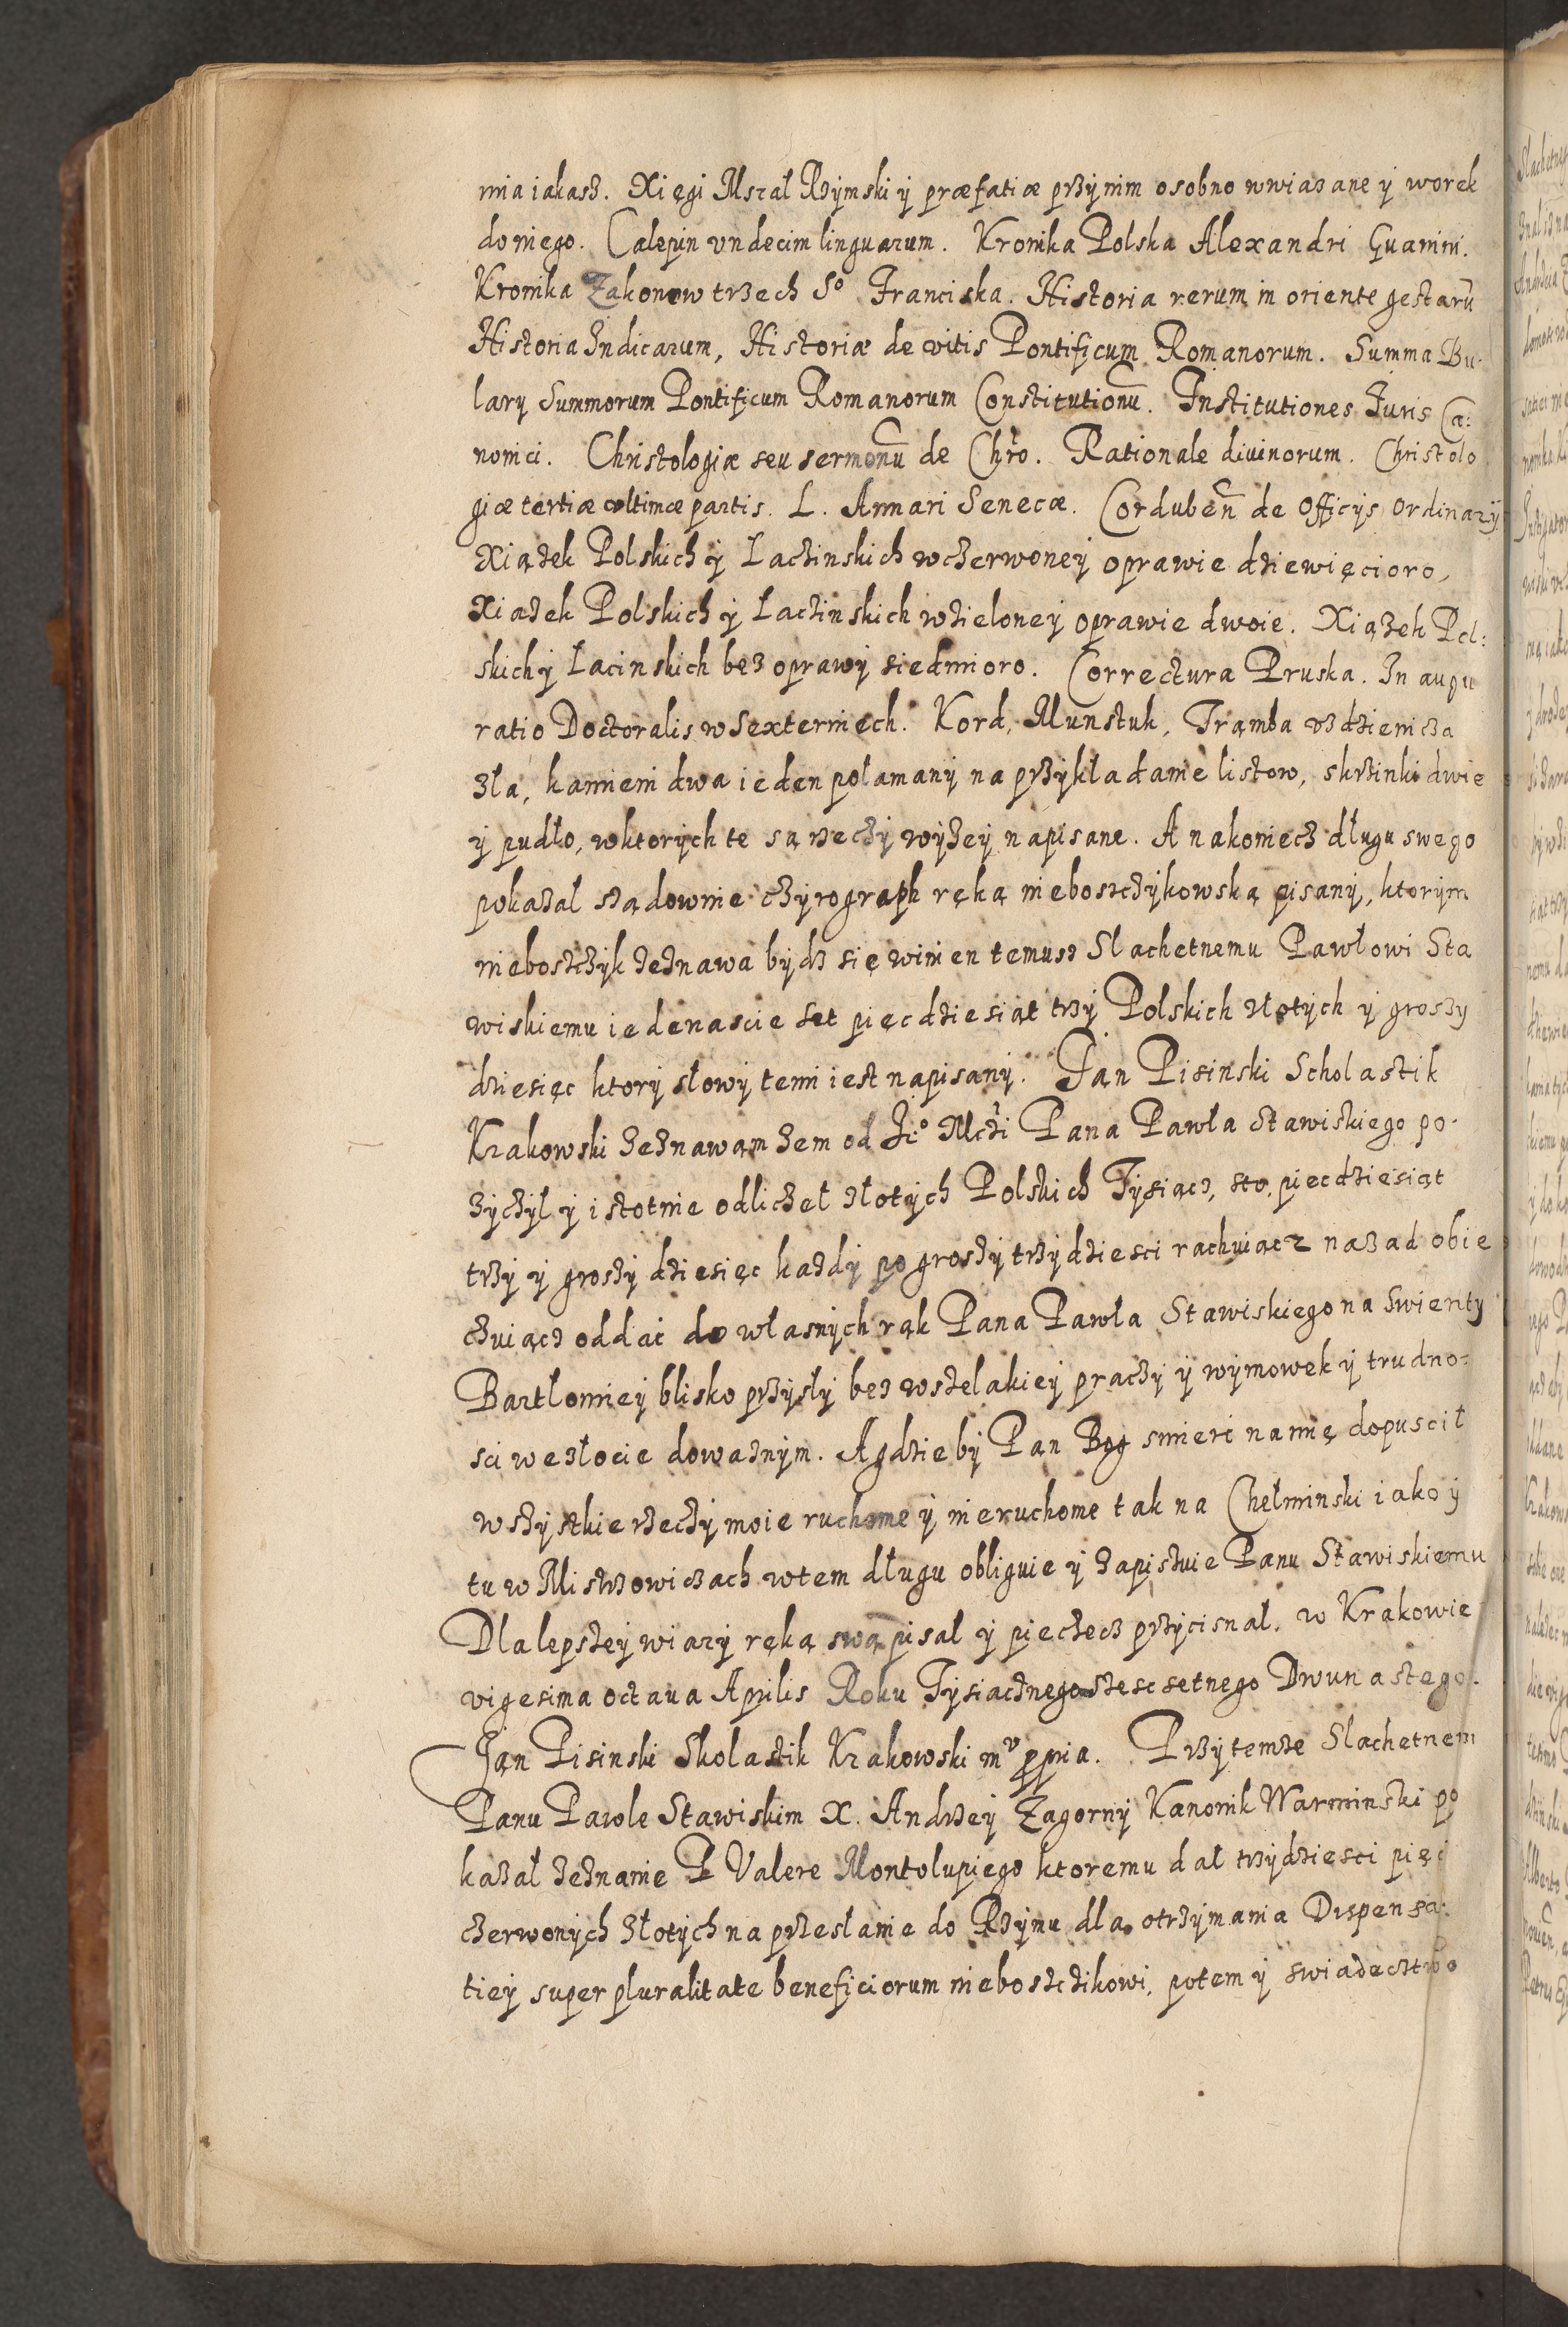 nia iakasz. Xięgi Mszał Rzymski ÿ præfatiæ przÿnim osobno wwiazane ÿ worek
do niego. Calepin vndecim linguarum. Kronika Polska Alexandri Guanini.
Kronika Zakonow trzech S° Franciska. Historia rerum in oriente gestarū
Historia Indicarum, Historiæ de vitis Pontificum Romanorum. Summa Bu-
lary Summorum Pontificum Romanorum Constitutionū. Institutiones Iuris Ca:
nonici. Christologiæ seu sermonū de Chro. Rationale diuinorum. Christolo
giæ tertiæ vltimæ partis. L. Annæi Senecæ. Cordubeñ de Officÿs ordinarÿ
Xiązek Polskich ÿ Laczinskich wczerwoneÿ oprawie dziewięcioro,
Xiazek Polskich ÿ Laczinskich wzieloneÿ oprawie dwoie. Xiązek Pol:
skich ÿ Lacinskich bez oprawÿ siedmioro. Correctura Pruska. In augu
ratio Doctoralis w Sexterniech. Kord, Munsztuk, Trąmba vzdzienicza
zła, kamieni dwa ieden połamanÿ na przÿkładanie listow, skrzinki dwie
ÿ pudło, wktorÿch te są rzeczÿ wÿzeÿ napisane. A nakoniecz długu swego
pokazal sządownie czÿrograph ręką nieboszczÿkowską pisanÿ, ktorÿm
nieboszczÿk zeznawa bÿdz się winien temusz Slachetnemu Pawłowi Sta
wiskiemu iedenascie set pięcdziesiąt trzÿ Polskich złotÿch ÿ groszy
dziesięc ktorÿ słowÿ temi iest napisanÿ. Jan Pisinski Scholastik
Krakowski zeznawąm zem od Je° Mczi Pana Pawła Stawiskiego po-
zÿczÿl ÿ istotnie odliczeł złotÿch Polskich Tÿsiącz, sto, piecdziesiąt
trzÿ ÿ groszÿ dziesięc kazdÿ po groszÿ trzÿdziesci rachuiącz nazad obie
czuiącz oddać do własnÿch rąk Pana Pawła Stawiskiego na Swienty
Bartłomieÿ blisko przÿsłÿ bez wszelakieÿ praczÿ ÿ wÿmowek ÿ trudno:
sci we złocie dowaznÿm. Agdziebÿ Pan Bog smierć namię dopuscił
wszÿstkie rzeczÿ moie ruchome ÿ nieruchome tak na Chełminski iako ÿ
tu w Mistrzowiczach wtem długu obliguie ÿ zapisuie Panu Stawiskiemu
Dla lepszeÿ wiarÿ ręką swą pisał ÿ pieczecz przÿcisnał. w Krakowie
vigesima octaua Aprilis Roku Tÿsiacznego szescsetnego Dwunastego.
Jąn Pisinski Skolastik Krakowski mᵛ ppria. Przÿ temze Slachetnem
Panu Pawle Stawiskim X. Andrzeÿ Zagornÿ Kanonik Warminski po
kazał zeznanie P Valere Montolupiego ktoremu dał trzÿdziesci pięć
czerwonÿch złotÿch na przesłanie do Rzÿmu dla otrzÿmania Dispensa:
tieÿ super pluralitate beneficiorum nieboszczikowi, potem ÿ swiadecztwo